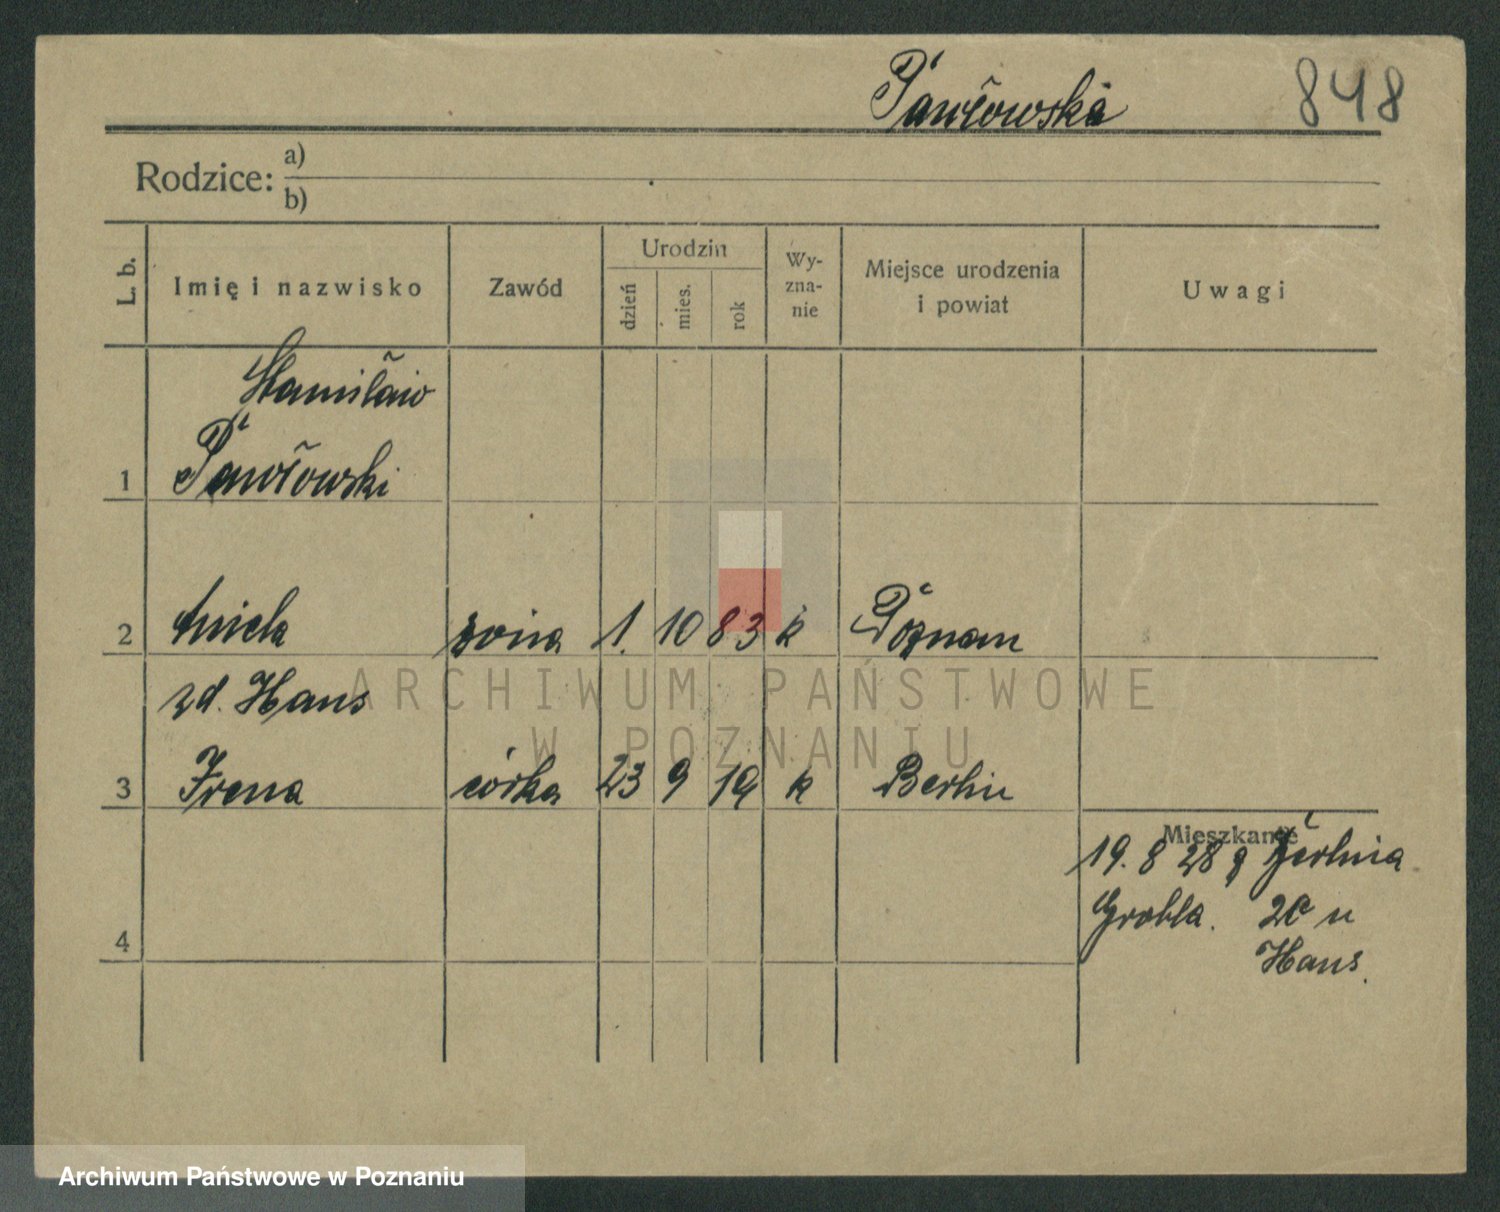 Pawłowska 848
Rodzice: a)
b)
L. b. Imię i nazwisko Zawód Urodzin dzień mies. rok Wy-zna-nie Miejsce urodzenia i powiat Uwagi
Stanisław
1 Pawłowski
2 Aniela żona 1. 10 83 k Poznan
zd. Hans
3 Irena córka 23 9 19 k Berlin
Mieszkanie
19. 8 28 z Berlina
Grobla. 2c u
Hans.
4
ARCHIWUM PAŃSTWOWE
W POZNANIU
Archiwum Państwowe w Poznaniu